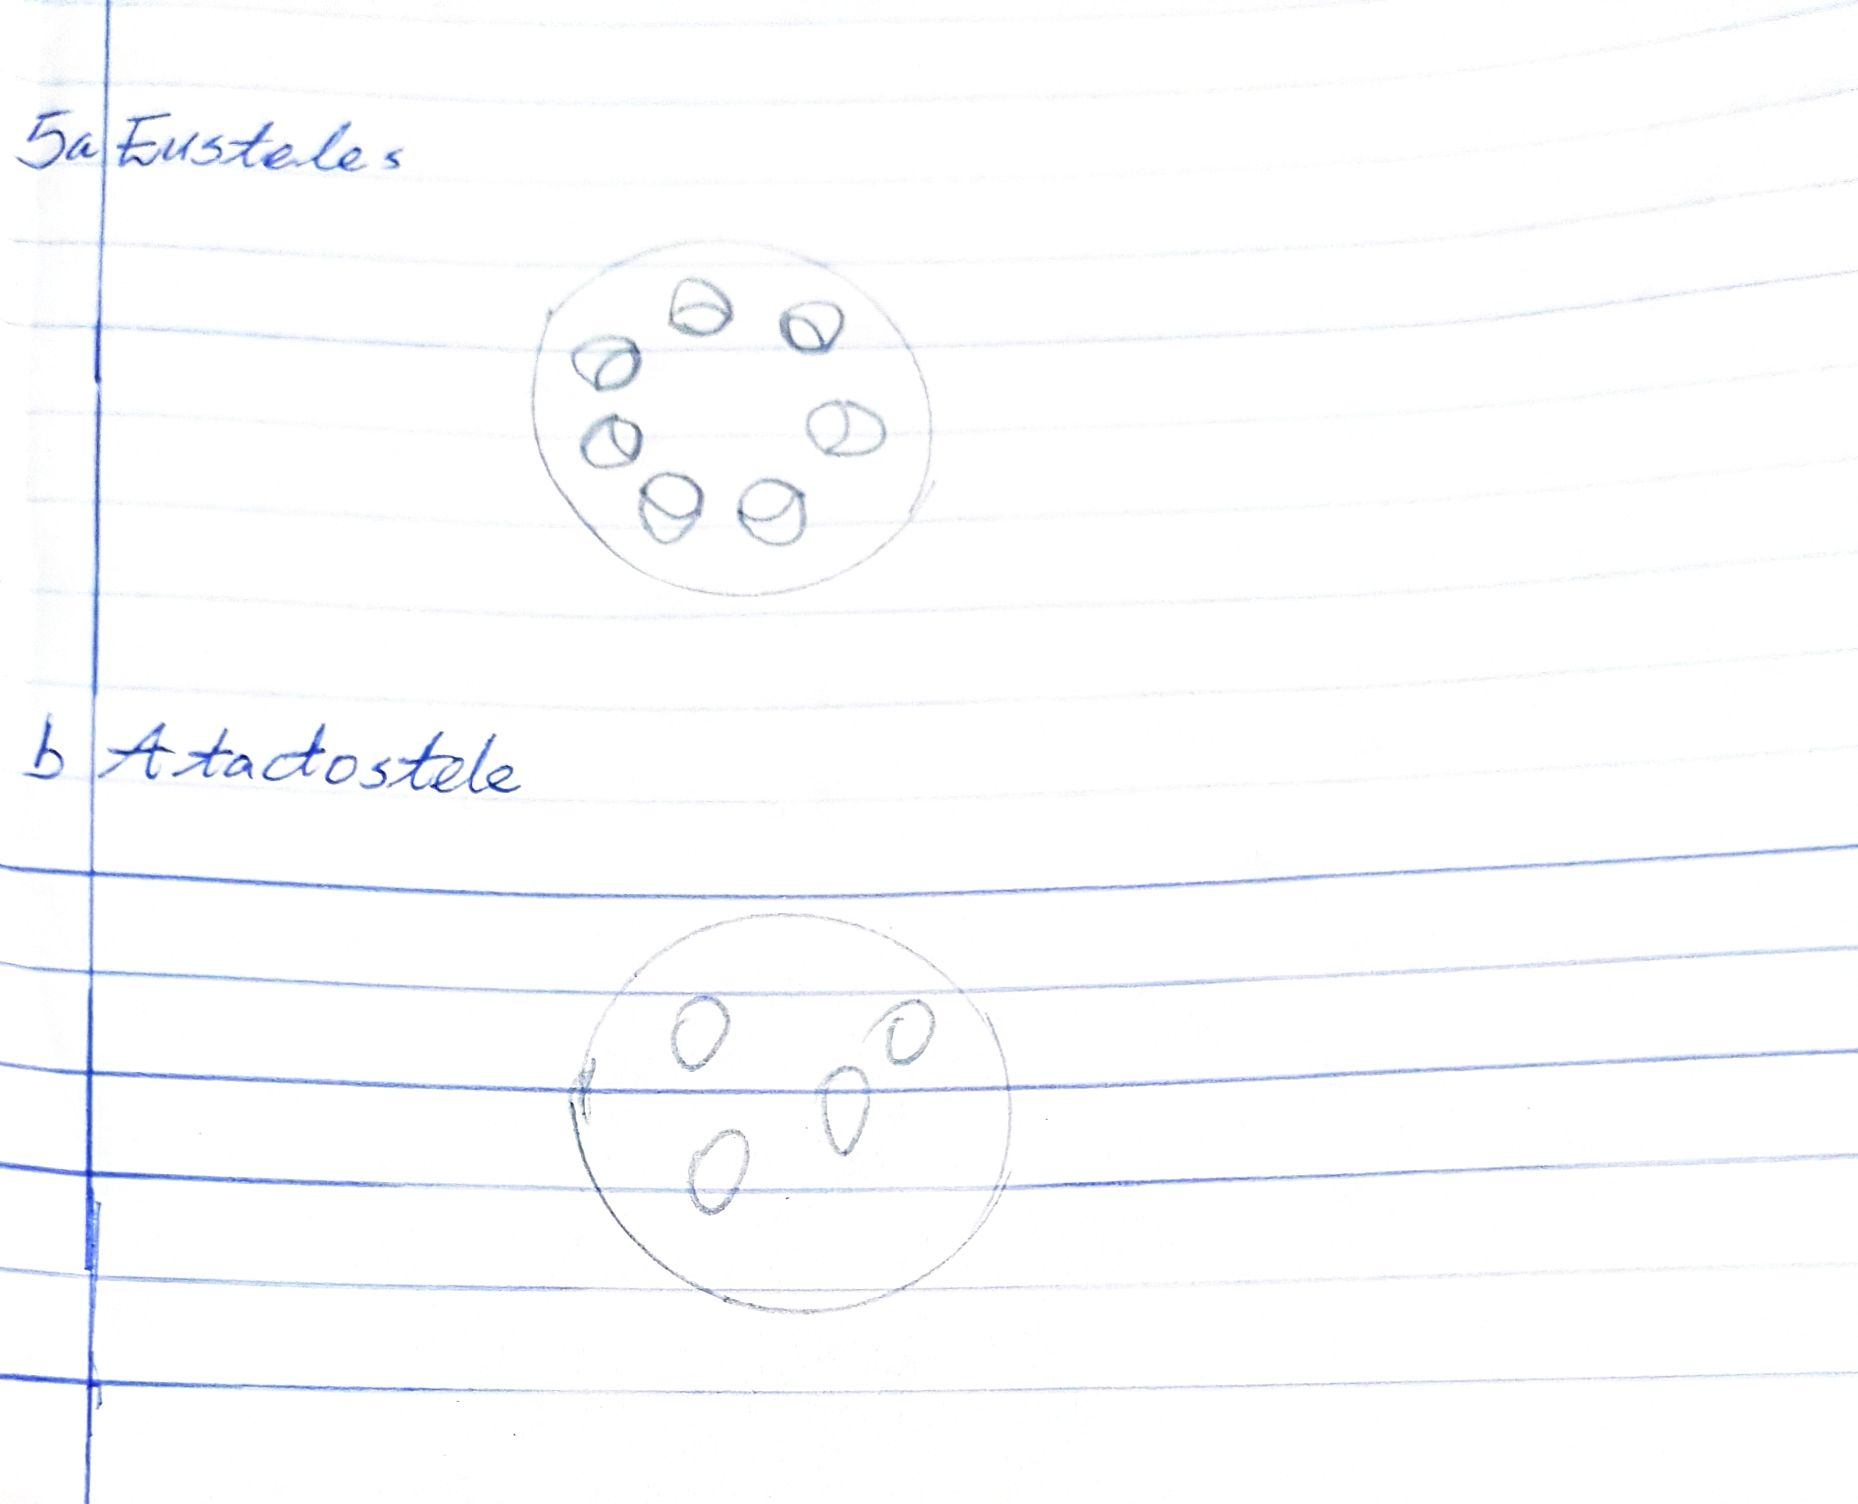 5a Eusteles
b Atactostele